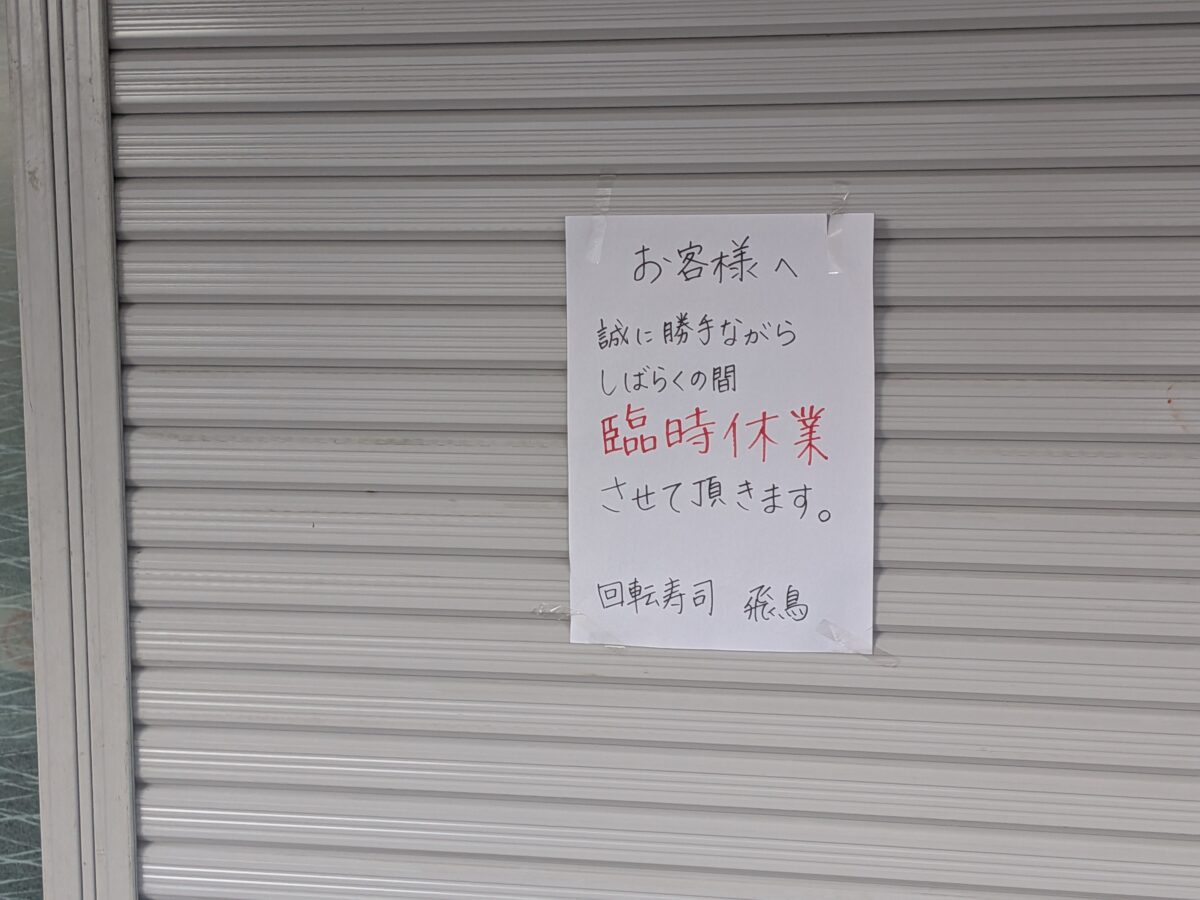 お客様へ
誠に勝手ながら
しばらくの間
臨時休業
させて頂きます。
回転寿司 飛鳥